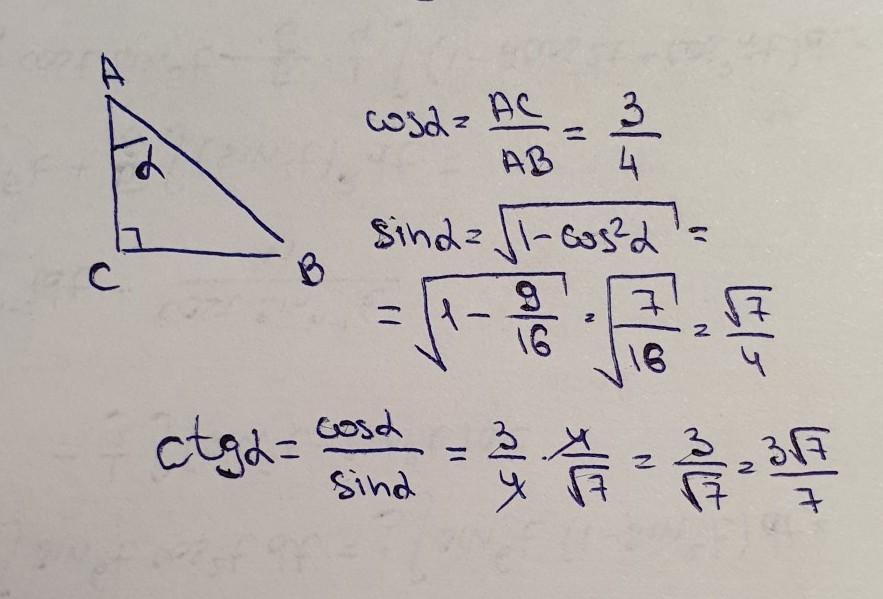 A
α
C
B
cosα = AC/AB = 3/4
sinα = √(1-cos²α) =
= √(1 - 9/16) = √(7/16) = √7/4
ctgα = cosα/sinα = 3/4 · 4/√7 = 3/√7 = 3√7/7